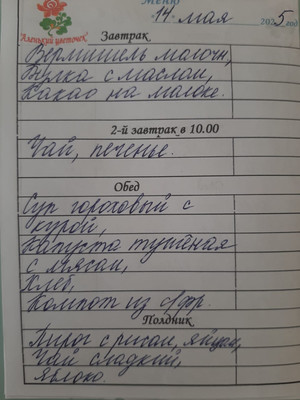 Меню
"Аленький цветочек"
"14" мая 2025 год
Завтрак
Вермишель молочн,
Булка с маслом,
Какао на молоке.
2-й завтрак в 10.00
Чай, печенье.
Обед
Суп гороховый с
курой,
Капуста тушёная
с мясом,
Хлеб,
Компот из с/фр.
Полдник
Пирог с рисом, яйцом,
Чай сладкий,
Яблоко.